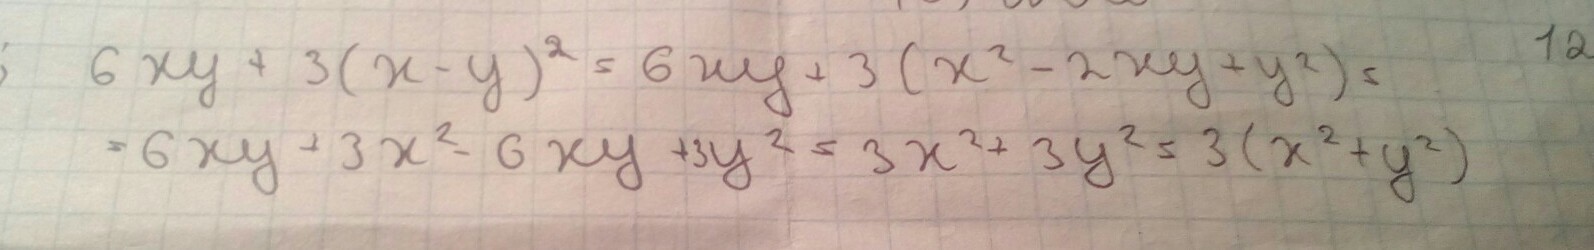 6xy + 3(x - y)² = 6xy + 3(x² - 2xy + y²) =
12
= 6xy + 3x² - 6xy + 3y² = 3x² + 3y² = 3(x² + y²)